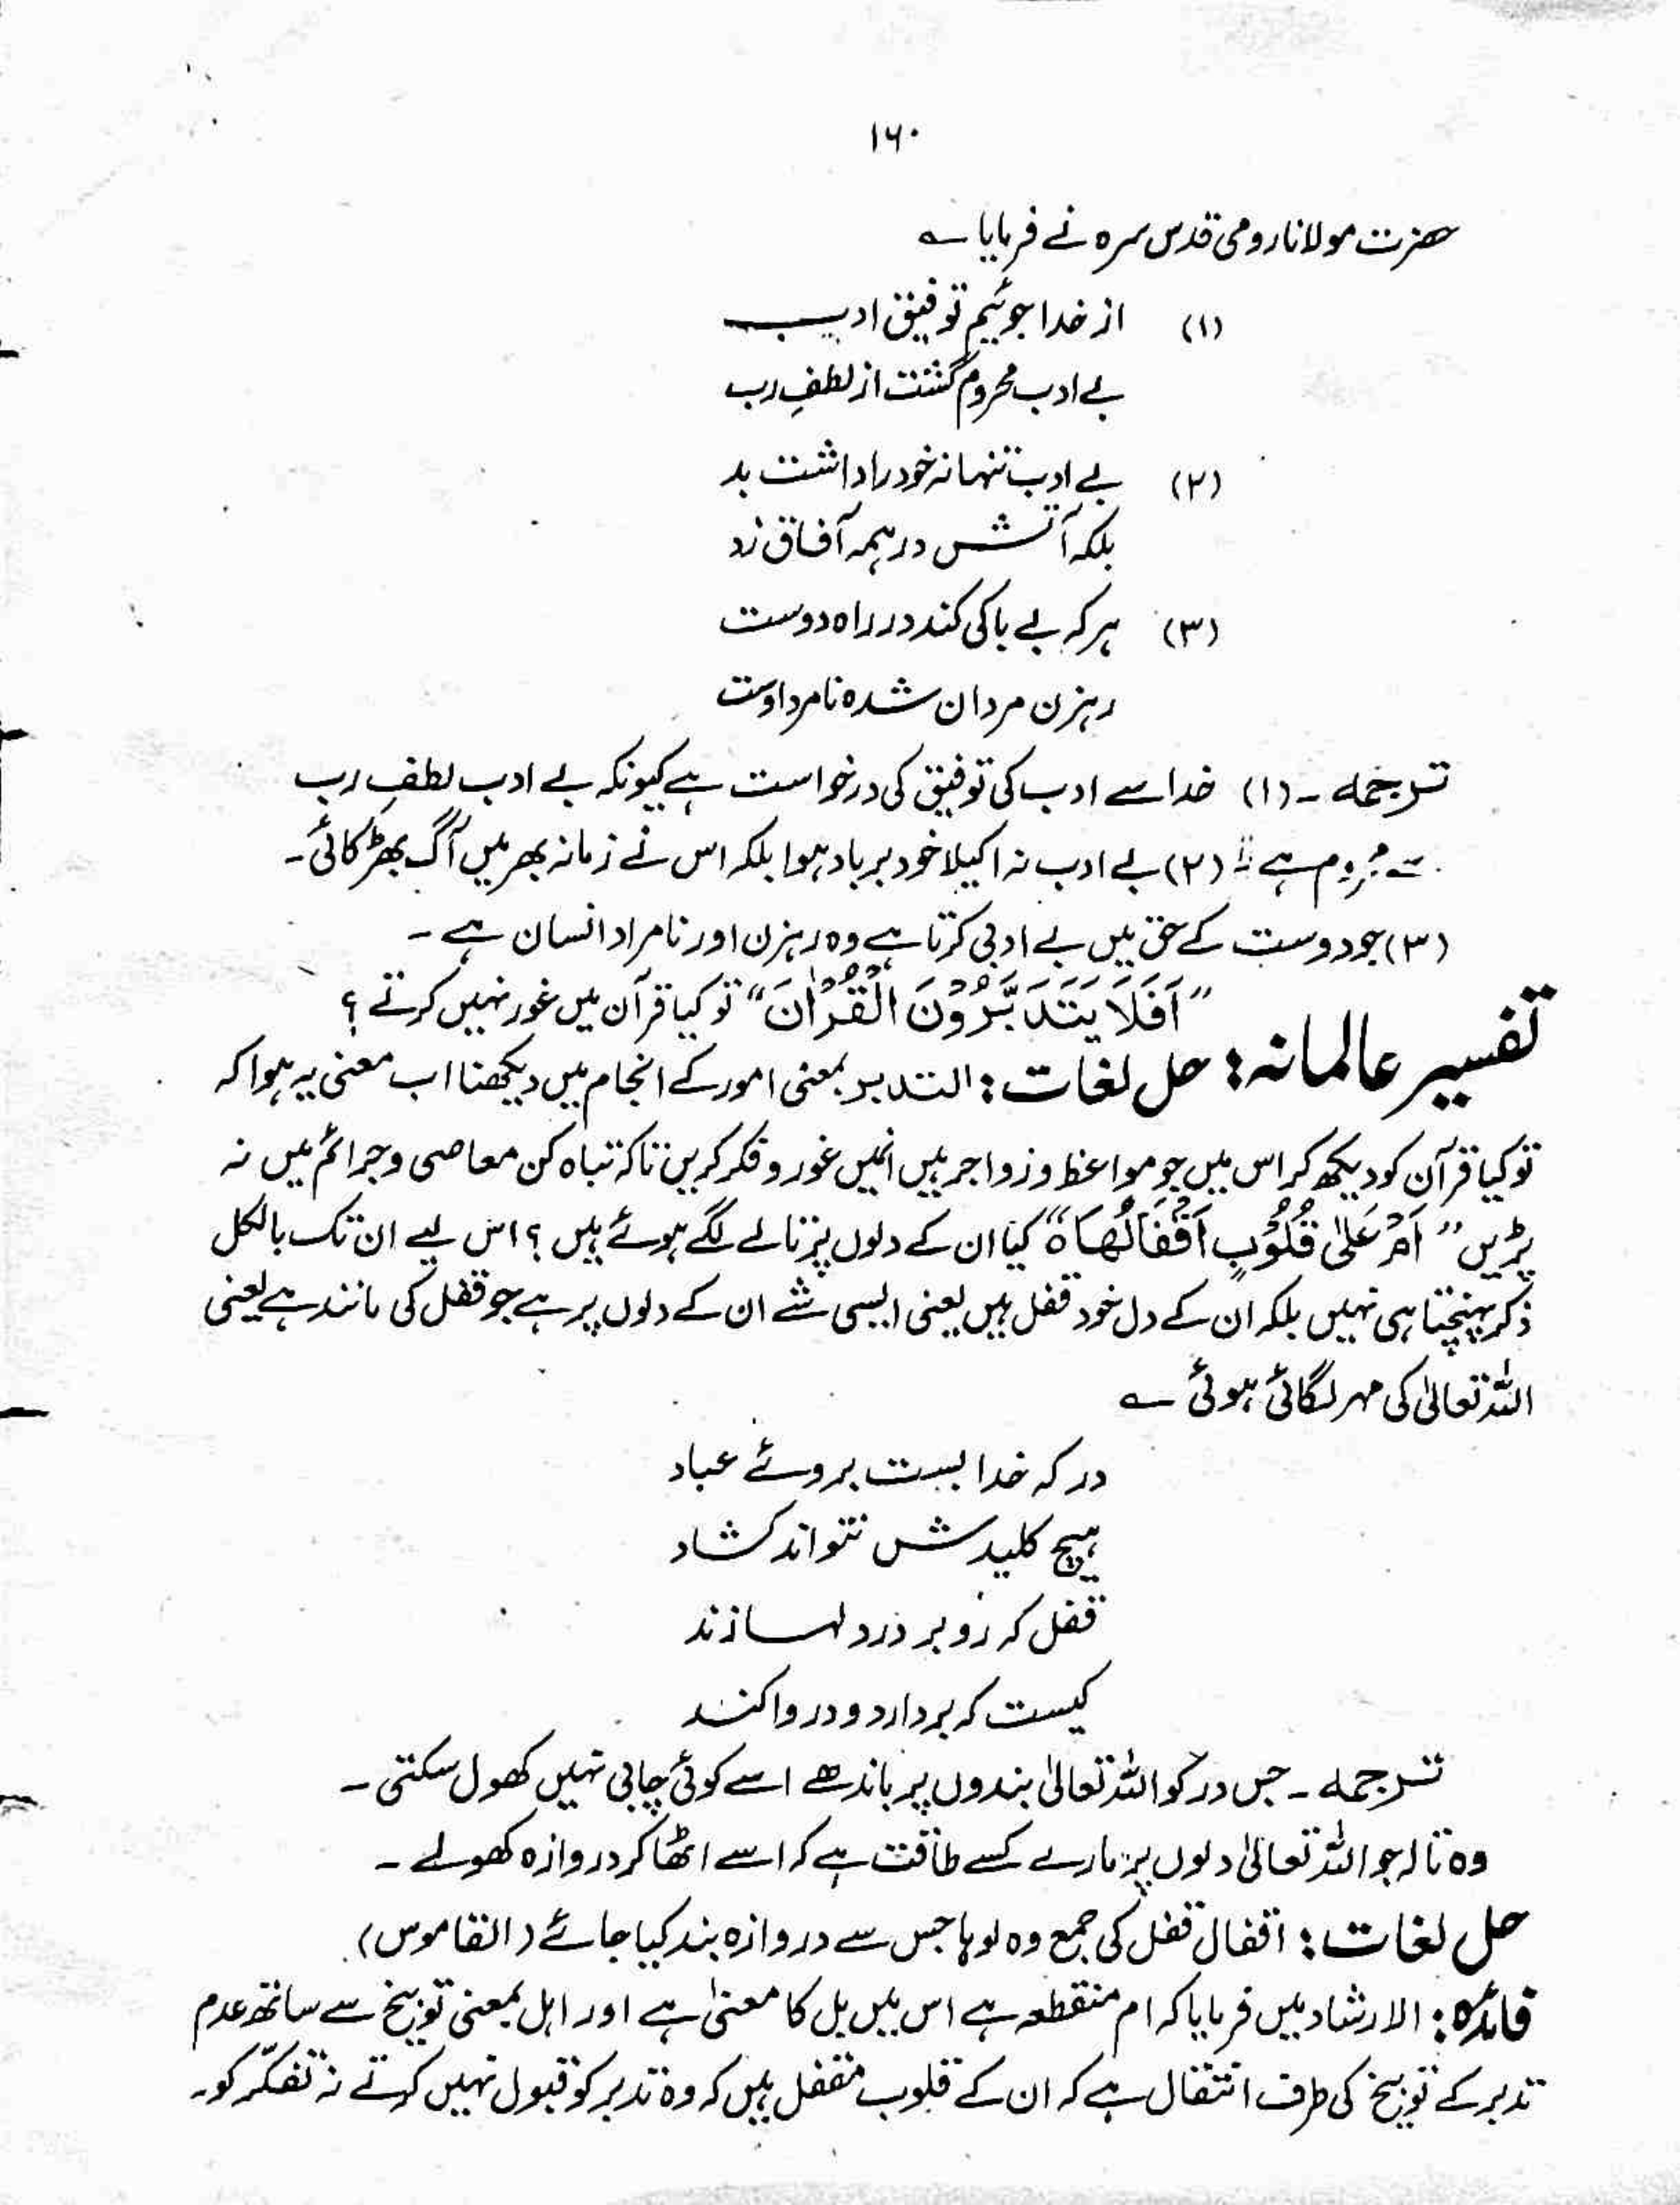 ۱۶۰
حضرت مولانا رومی قدس سرہ نے فرمایا ؎
(۱) از خدا جوئیم توفیق ادب
بے ادب محروم گشت از لطفِ رب
(۲) بے ادب تنہا نہ خود را داشت بد
بلکہ آتش در ہمہ آفاق زد
(۳) ہر کہ بے باکی کند در راہ دوست
رہزن مردان شدہ نامرد اوست
ترجمہ ۔ (۱) خدا سے ادب کی توفیق کی درخواست ہے کیونکہ بے ادب لطفِ رب
سے محروم ہے (۲) بے ادب نہ اکیلا خود برباد ہوا بلکہ اس نے زمانہ بھر میں آگ بھڑکائی ۔
(۳) جو دوست کے حق میں بے ادبی کرتا ہے وہ رہزن اور نامراد انسان ہے ۔
”اَفَلَا یَتَدَبَّرُوْنَ الْقُرْاٰنَ“ تو کیا قرآن میں غور نہیں کرتے ؟
تفسیر عالمانہ : حل لغات : التدبر بمعنی امور کے انجام میں دیکھنا اب معنی یہ ہوا کہ
تو کیا قرآن کو دیکھ کر اس میں جو مواعظ و زواجر ہیں انہیں غور و فکر کریں تاکہ تباہ کن معاصی و جرائم میں نہ
پڑیں ”اَمْ عَلٰی قُلُوْبٍ اَقْفَالُهَا ۃ“ کیا ان کے دلوں پر تالے لگے ہوئے ہیں ؟ اس لیے ان تک بالکل
ذکر پہنچتا ہی نہیں بلکہ ان کے دل خود قفل ہیں یعنی ایسی شے ان کے دلوں پر ہے جو قفل کی مانند ہے یعنی
اللہ تعالیٰ کی مہر لگائی ہوئی ؎
در کہ خدا بست بروئے عباد
ہیچ کلیدش نتواند کشاد
قفل کہ زو بر در دلہا زند
کیست کہ بردارد و در وا کند
ترجمہ ۔ جس در کو اللہ تعالیٰ بندوں پر باندھے اسے کوئی چابی نہیں کھول سکتی ۔
وہ تالہ جو اللہ تعالیٰ دلوں پر مارے کسے طاقت ہے کہ اسے اٹھا کر دروازہ کھولے ۔
حل لغات : اقفال قفل کی جمع وہ لوہا جس سے دروازہ بند کیا جائے (القاموس) .
فائدہ : الارشاد میں فرمایا کہ ام منقطعہ ہے اس میں بل کا معنیٰ ہے اور اہل بمعنی توبیخ سے ساتھ عدم
تدبر کے توبیخ کی طرف انتقال ہے کہ ان کے قلوب مقفل ہیں کہ وہ تدبر کو قبول نہیں کرتے نہ تفکّر کو ۔